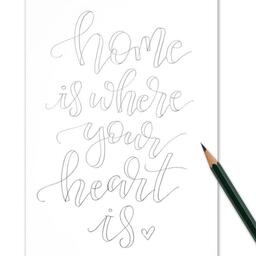 home
is where
your
heart
is